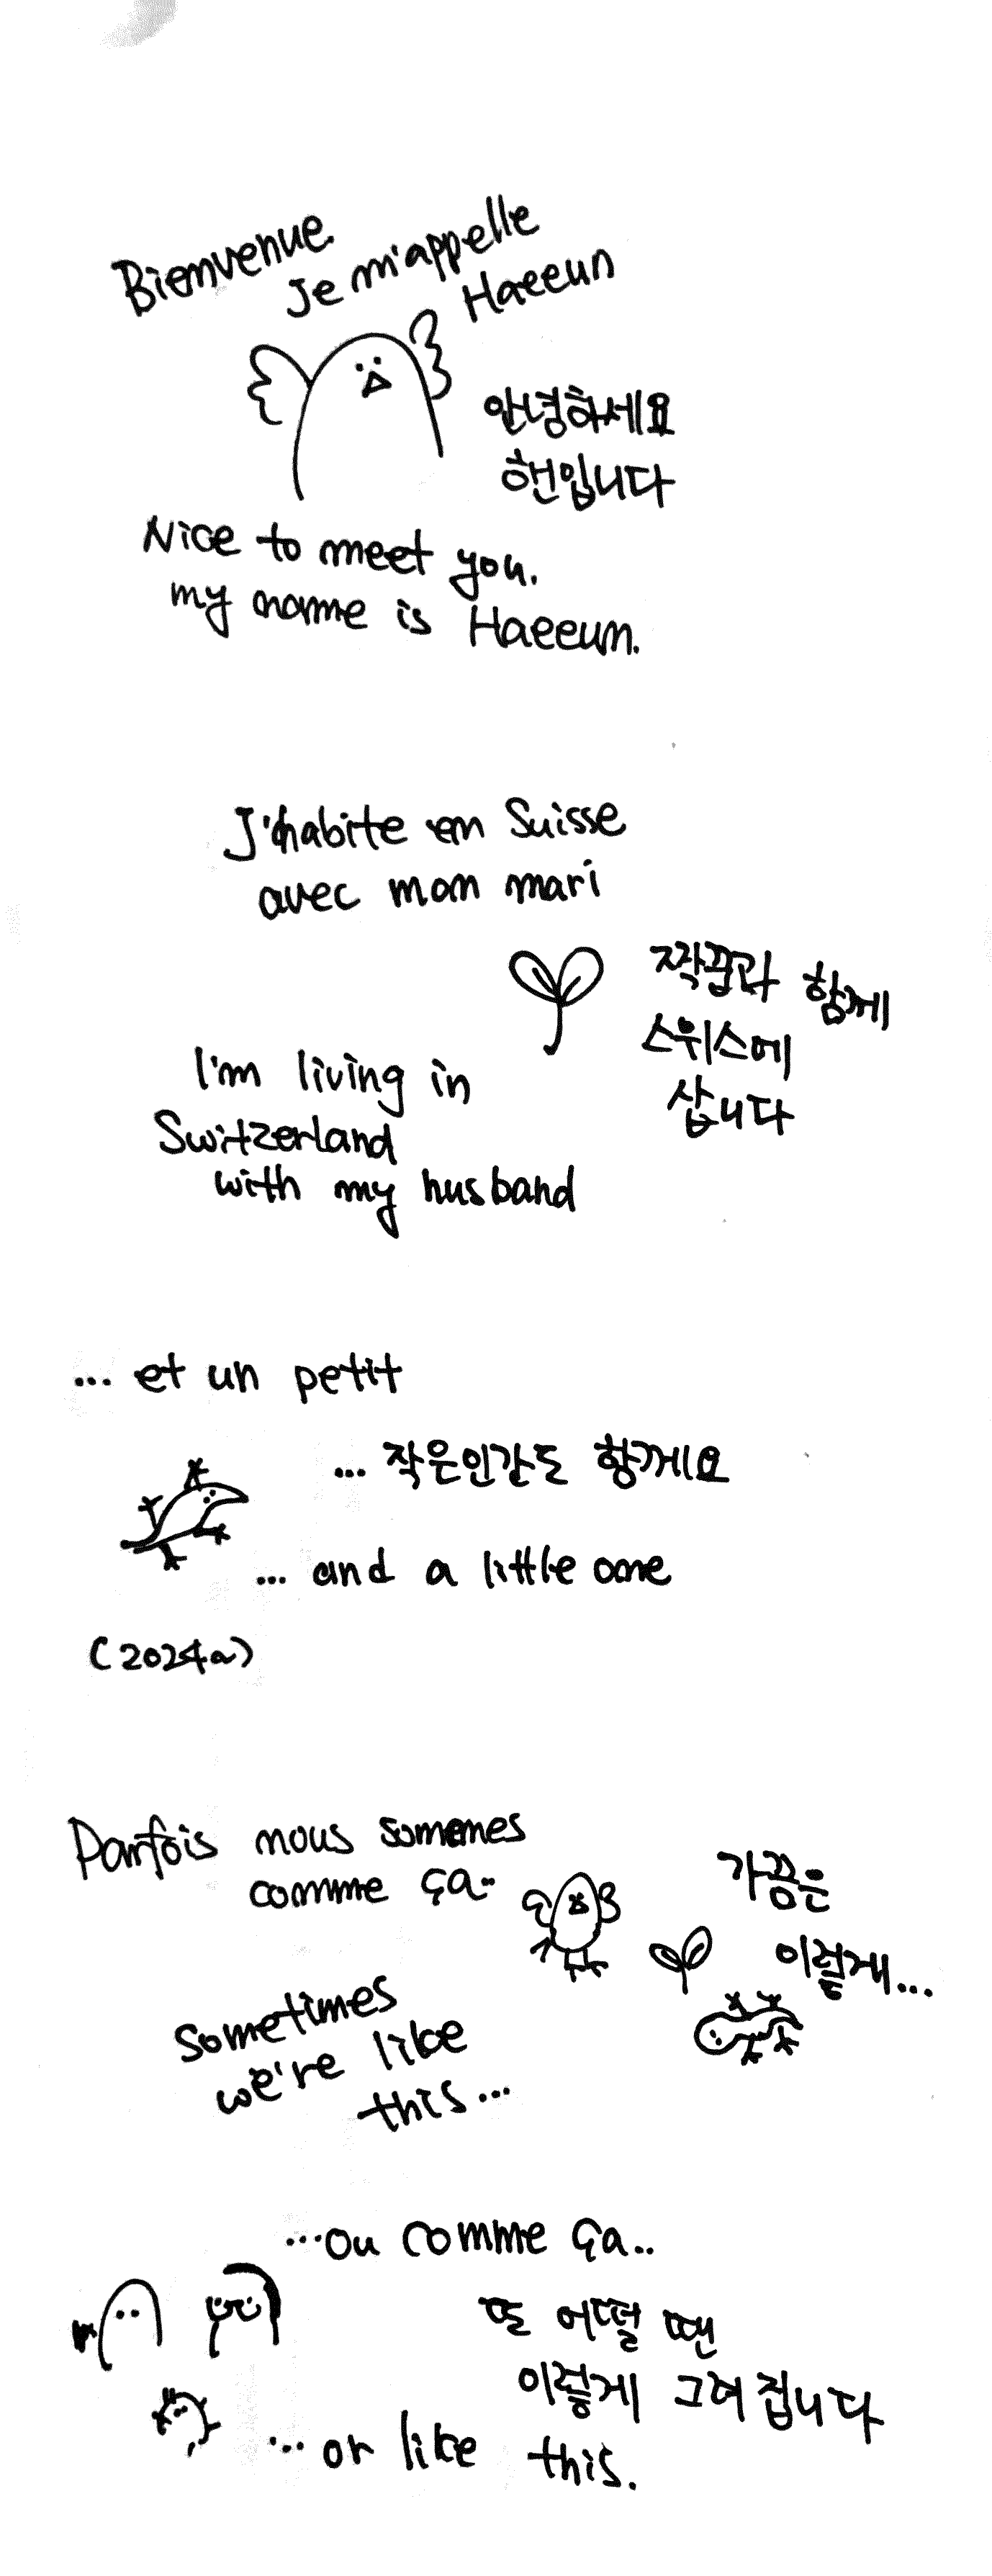 Bienvenue.
Je m'appelle
Haeeun
안녕하세요
헌입니다
Nice to meet you.
my name is Haeeun.
J'habite en Suisse
avec mon mari
짝꿉과 함께
스위스에
삽니다
I'm living in
Switzerland
with my husband
... et un petit
... 작은인간도 함께요
... and a little one
(2024~)
Parfois nous sommes
comme ça..
가끔은
이렇게...
Sometimes
we're like
this...
...ou comme ça..
또 어떨 땐
이렇게 그려집니다
...or like this.